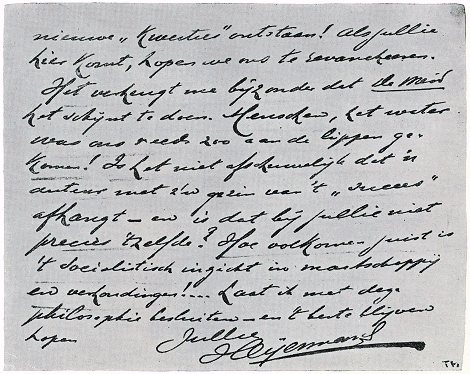 nieuwe „Kwertus" ontstaan! Als jullie
hier komt, hopen we ons te revancheeren.
Het verheugt me bijzonder dat de Meid
het schijnt te doen. Menschen, het water
was ons reeds zoo aan de lippen ge-
komen! Is het niet afschuwelijk dat 'n
auteur met z'n gezin van 't „succes"
afhangt – en is dat bij jullie niet
precies 'tzelfde? Hoe volkomen juist is
't socialistisch inzicht in maatschappij
en verhoudingen!.... Laat ik met deze
philosophie besluiten – en 't beste blijven
hopen
Jullie
Heijermans